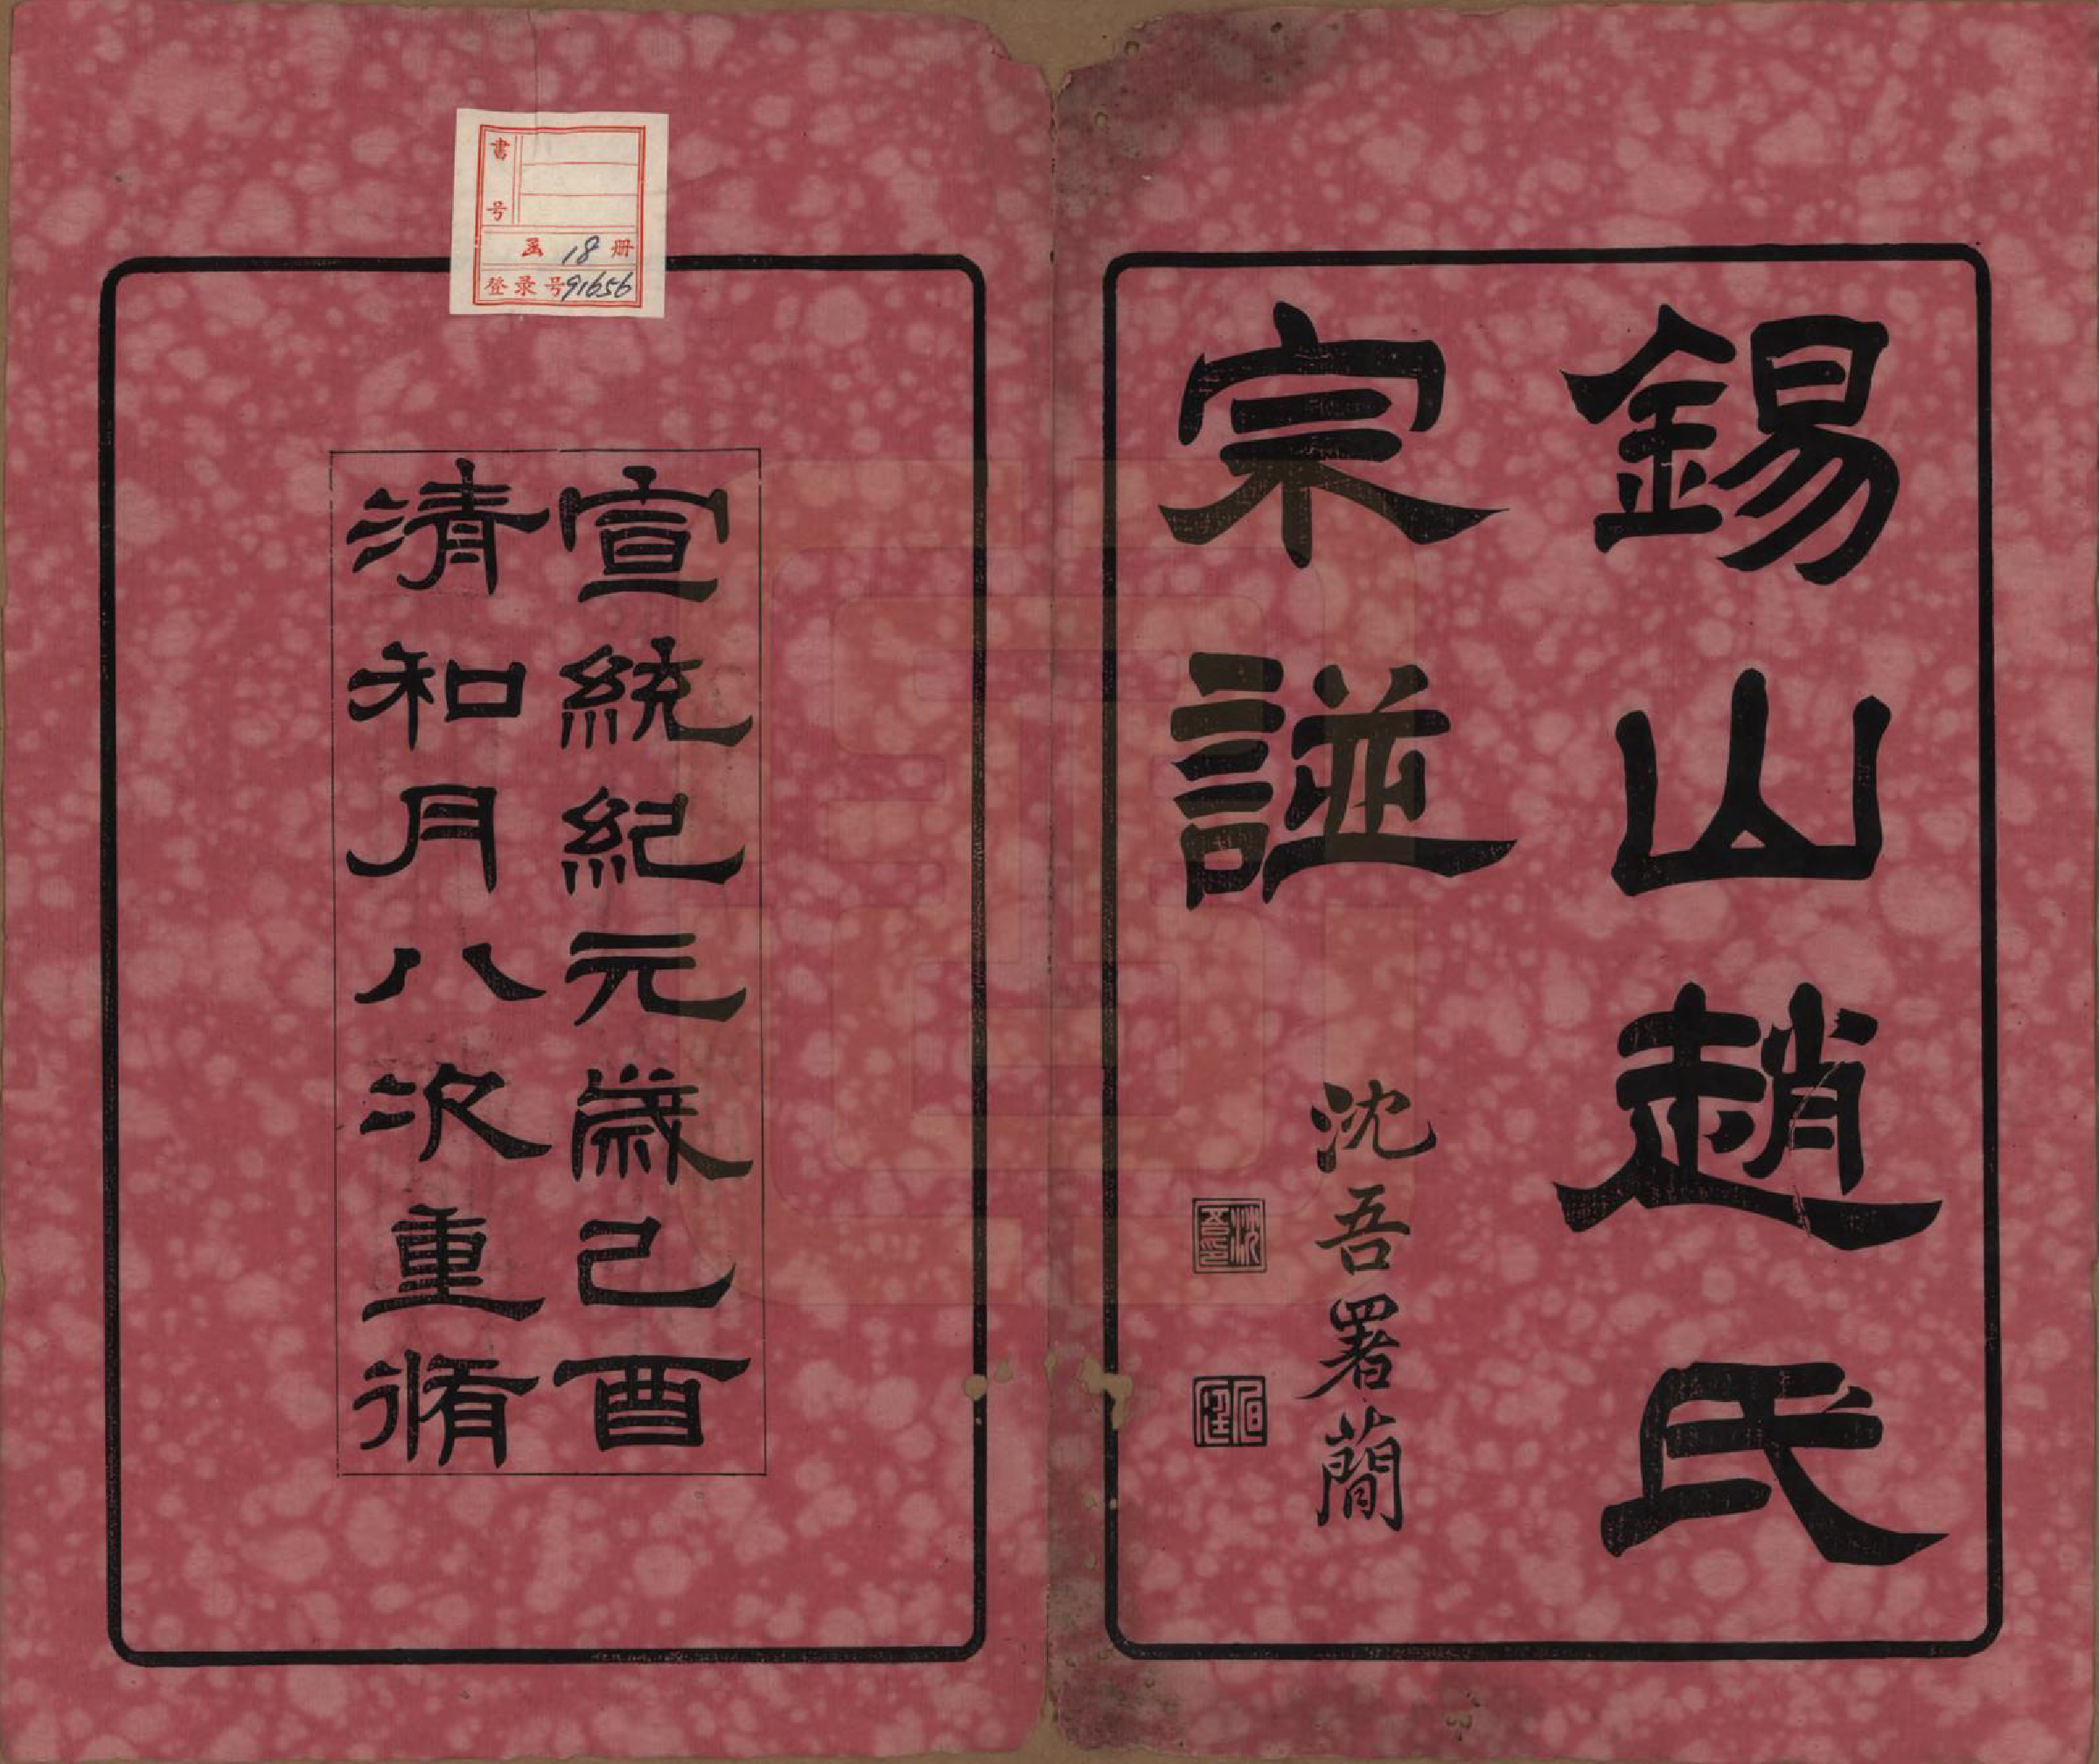 錫山趙氏
宗譜
沈吾署簡
宣統紀元歲己酉
清和月八次重脩
書号
函 18 册
登录号 91656